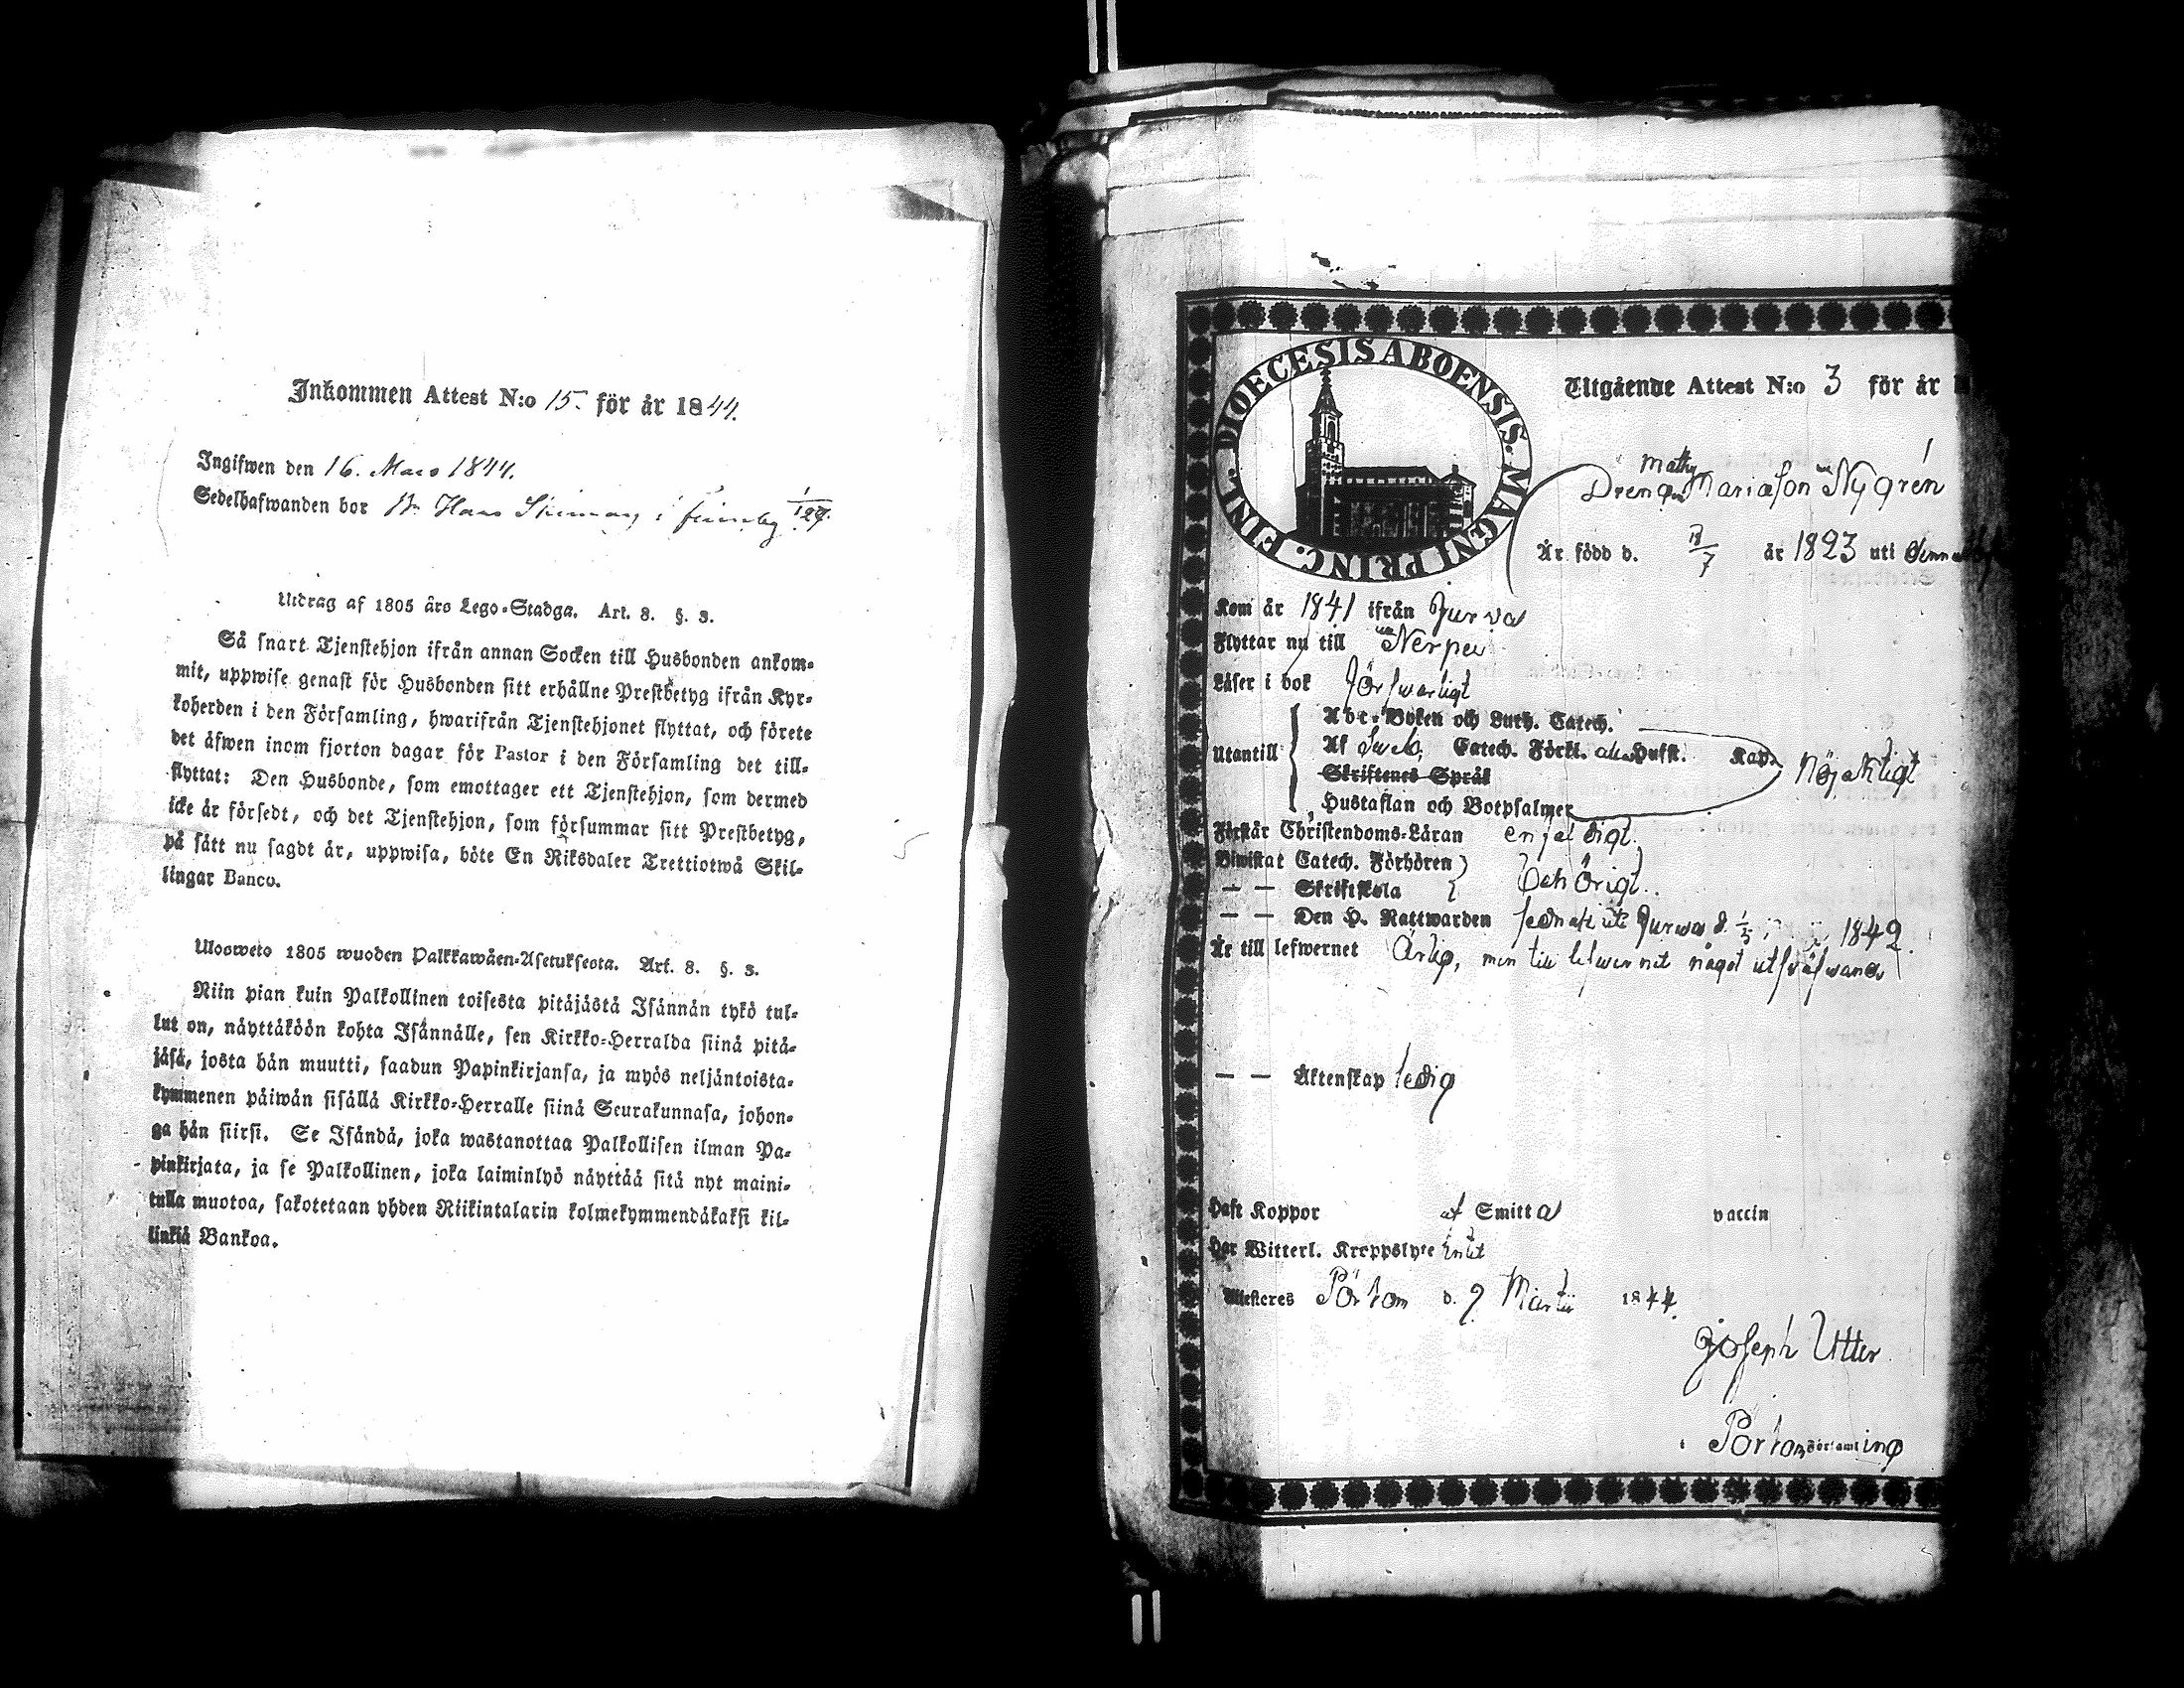 Inkommen Attest N:o 15. för år 1844.
Ingifwen den 16. Mars 1844.
Sedelhafwanden bor Hans i
Utdrag af 1805 års Lego-Stadga. Art. 8. §. 3.
Så snart Tjenstehjon ifrån annan Socken till Husbonden ankom-
mit, uppwise genast för Husbonden sitt erhållne Prestbetyg ifrån Kyr-
koherden i den Församling, hwarifrån Tjenstehjonet flyttat, och förete
det äfwen inom fjorton dagar för Pastor i den Församling det till-
flyttat: Den Husbonde, som emottager ett Tjenstehjon, som dermed
icke är försedt, och det Tjenstehjon, som försummar sitt Prestbetyg,
på sätt nu sagdt är, uppwisa, böte En Riksdaler Trettiotwå Skil-
lingar Banco.
Ulosweto 1805 wuoden Palkkawäen-Asetuksesta. Art. 8. §. 3.
Niin pian kuin Palkollinen toisesta pitäjästä Isännän tykö tul-
lut on, näyttäköön kohta Isännälle, sen Kirkko-Herralda siinä pitä-
jäsä, josta hän muutti, saadun Papinkirjansa, ja myös neljäntoista-
kymmenen päiwän sisällä Kirkko-Herralle siinä Seurakunnasa, johon-
ga hän siirsi. Se Isändä, joka wastanottaa Palkollisen ilman Pa-
pinkirjata, ja se Palkollinen, joka laiminlyö näyttää sitä nyt maini-
tulla muotoa, sakotetaan yhden Riikintalarin kolmekymmendäkaksi kil-
linkiä Bankoa.
DIOECESIS ABOENSIS. MAGNI PRINC. FINL.
Utgående Attest N:o 3 för år
Drengen Mathz Mariæson Nygrén
Är född d. 18/7 år 1823 uti
Kom år 1841 ifrån Jurva
Flyttar nu till Nerpes
Läser i bok försvarligt
Utantill
Abc-Boken och Luth. Catech.
Af Sveb. Catech. Förkl. Hufst. Kap.
Skriftenes Språk
Hustaflan och Botpsalmer
Nöjaktigt
Förstår Christendoms-Läran enfaldigt.
Biwistat Catech. Förhören
— — Skriftskola
behörigt.
— — Den H. Nattwarden sednast uti Jurva d. 1842.
Är till lefwernet Ärlig, men till lefvernet något utsväfvande
— — Äktenskap ledig
Haft Koppor af Smitta vaccin
Har Witterl. Kroppslyte intet
Attesteres Pörtom d. 9 Martii 1844.
Joseph Utter
i Pörtom Församling